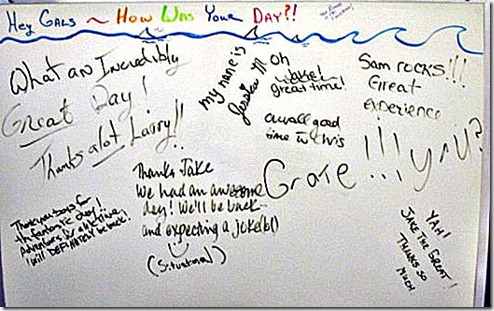 Hey Gals ~ How Was Your Day?!
What an Incredibly
Great Day!
Thanks alot Larry!!
my name is
Jessica M
Oh
Jake!
great time!
a wall good
time
Sam rocks!!!
Great
experience
Grate!!! y u?
Thanks Jake
We had an awesome
day! We'll be back
and expecting a joke(b()
(Situational)
Thank you boys for
the fantastic day!
Adventures &
I will DEFINITELY be back!
YAH!
JAKE THE GREAT!
THANKS SO
MUCH